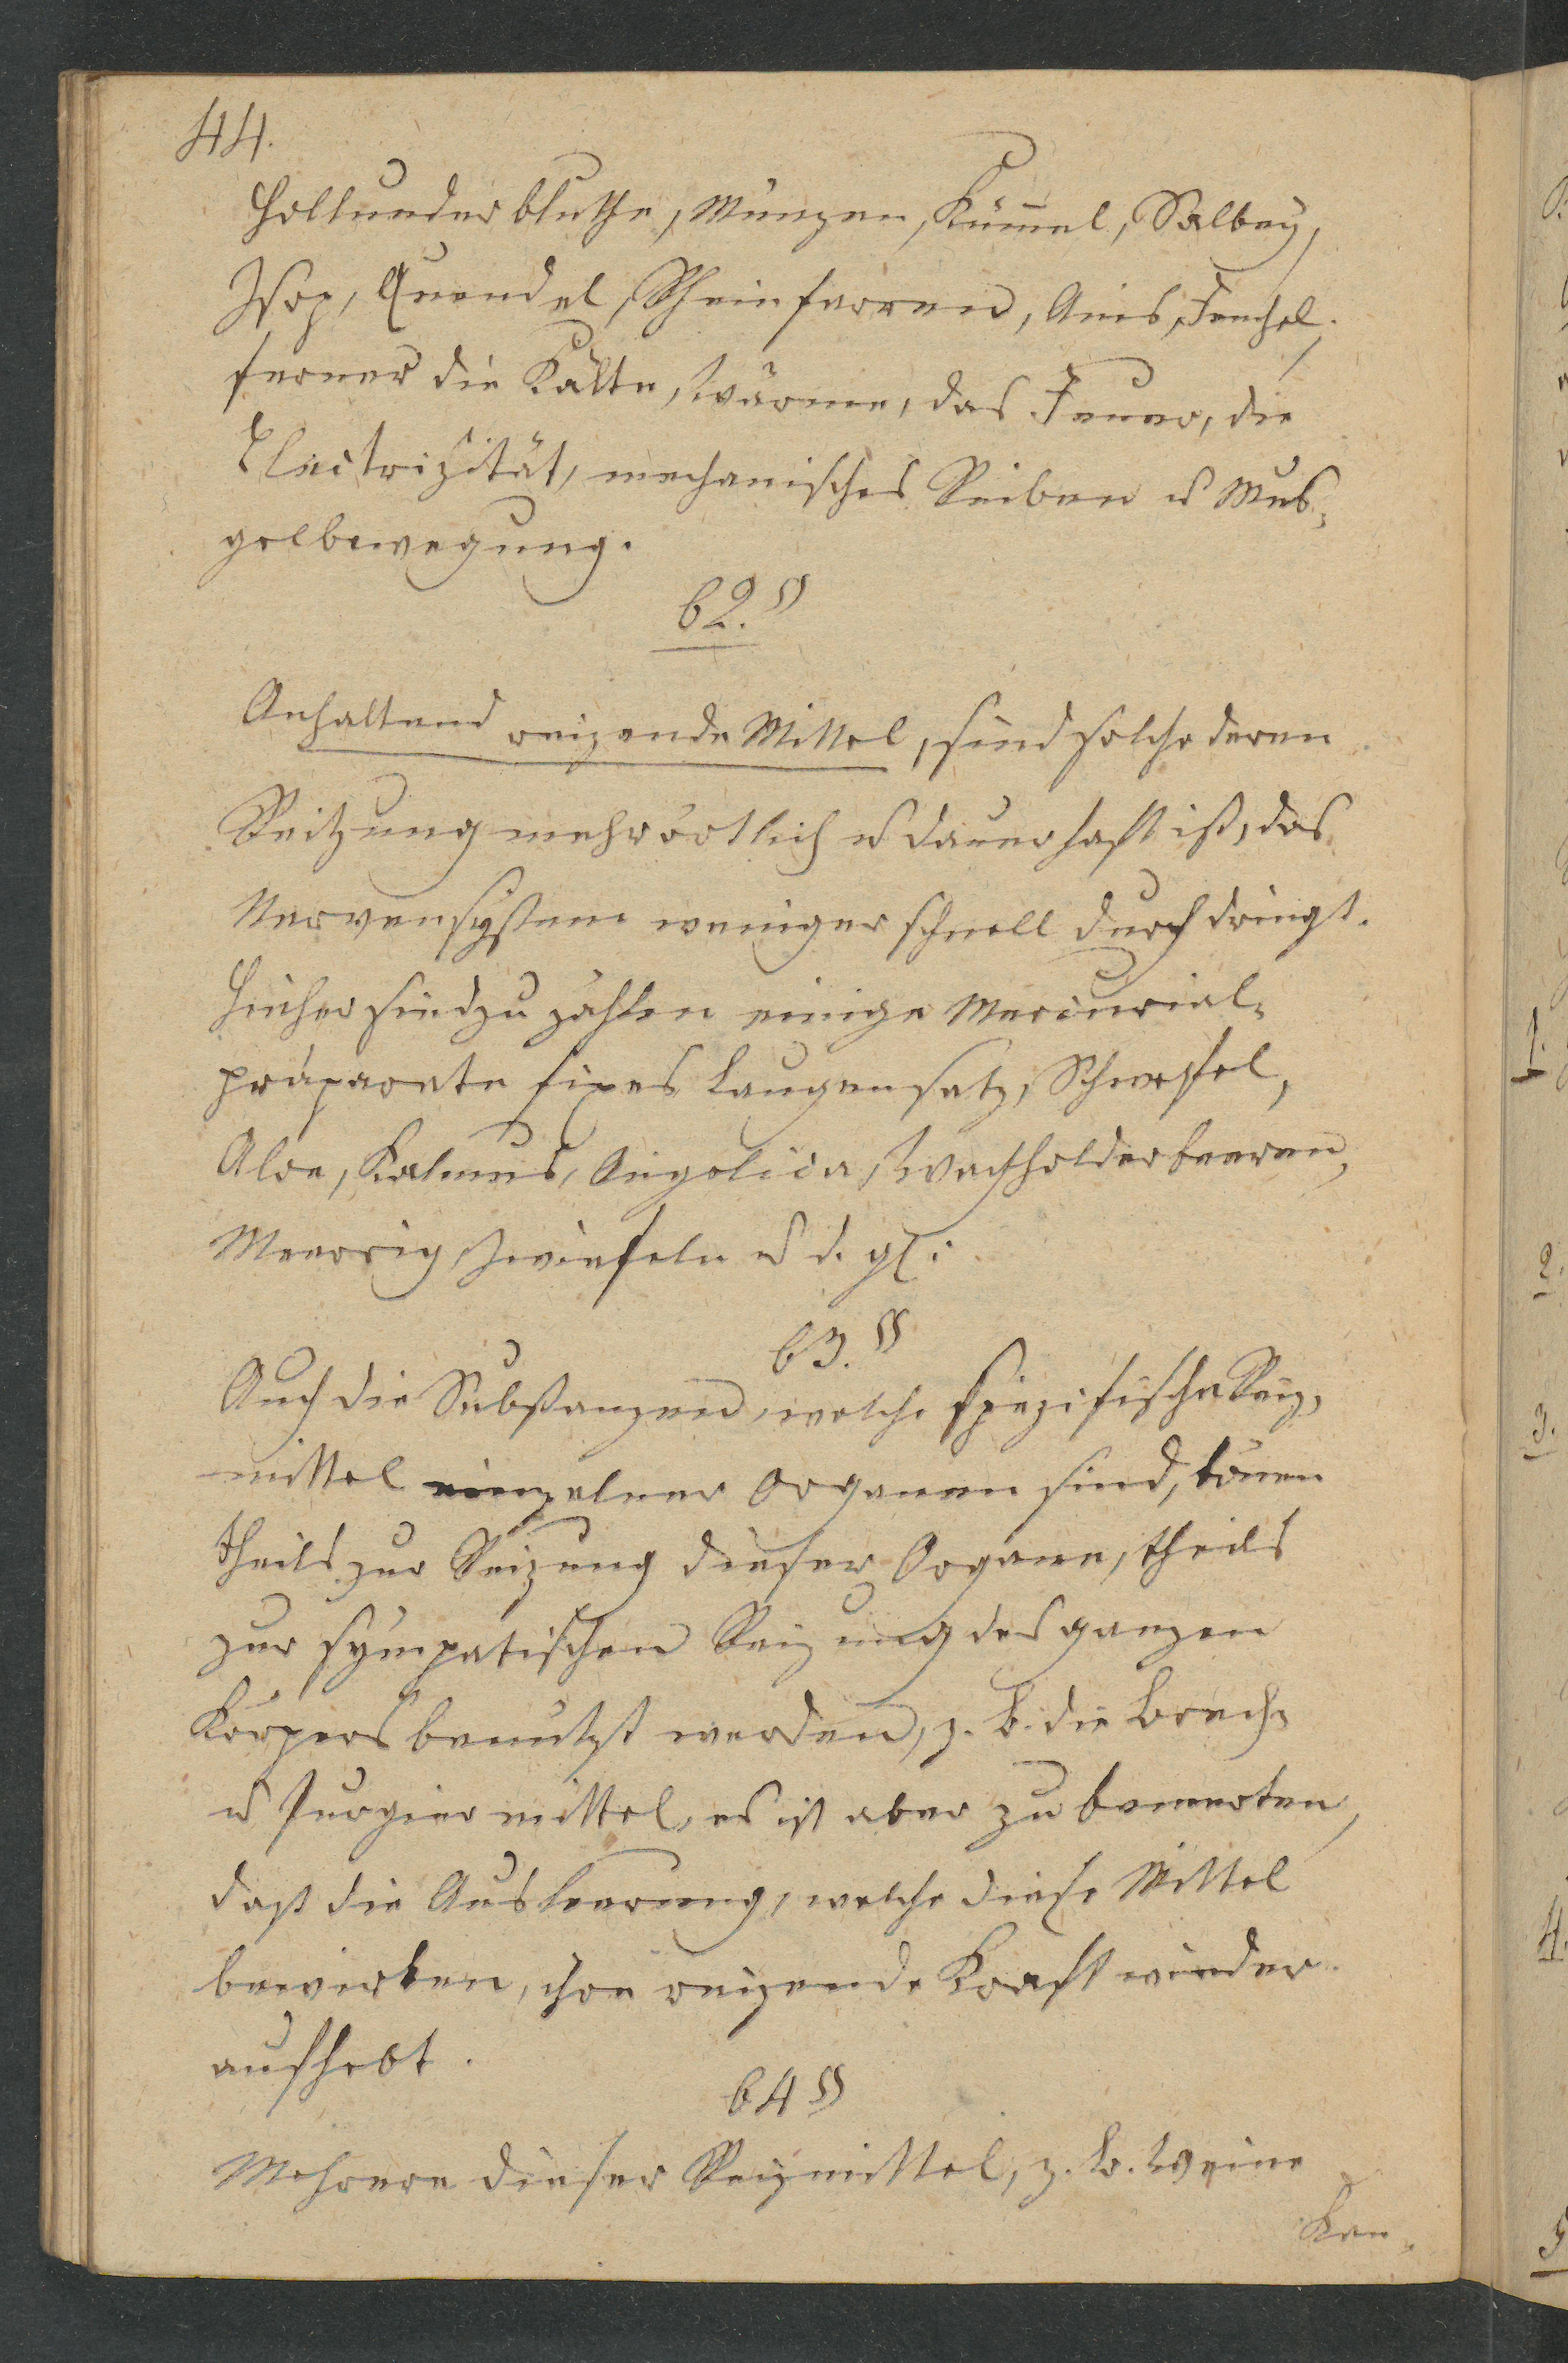 44.
Hollunderbluthe, Münzen, Kümel, Salbey,
Isop, Quendel, Rheinfarren, Anis, Fenchel;
ferner die Kälte, Wärme, das Feuer, die
Electrizität, mechanisches Reiben u Mus-
gelbewegung.
62. §
Anhaltend reizende Mittel, sind solche deren
Reitzung mehr örtlich u dauerhaft ist, das
Nervensystem weniger schnell durchdringt.
Hieher sind zu zählen einige Mercurial-
präparate fixes Laugensatz, Schwefel,
Aloe, Kalmus, Angelica, Wachholderbeeren,
Meerrig, Zwiefeln u d. gl:
63. §
Auch die Substanzen, welche spezifische Reiz-
mittel einzelner Organen sind, könen
theils zur Reizung dieser Organe, theils
zur sympatischen Reizung des ganzen
Körpers benützt werden, z. B. die Brech-
u Purgiermittel, es ist aber zu bemerken,
daß die Ausleerung, welche diese Mittel
bewirken, ihre reizende Kraft wieder
aufhebt.
64 §
Mehrere dieser Reizmittel, z. B. Weine
1.
2.
3.
4.